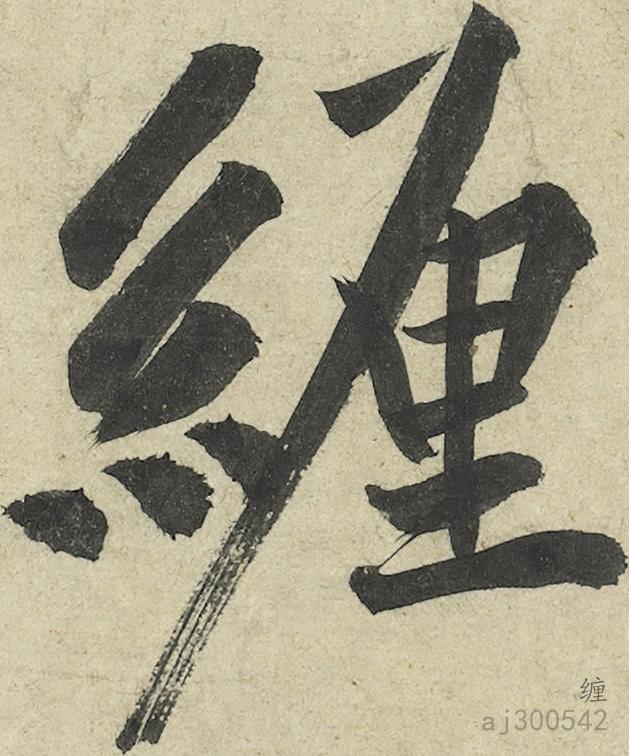 緾
缠
aj300542